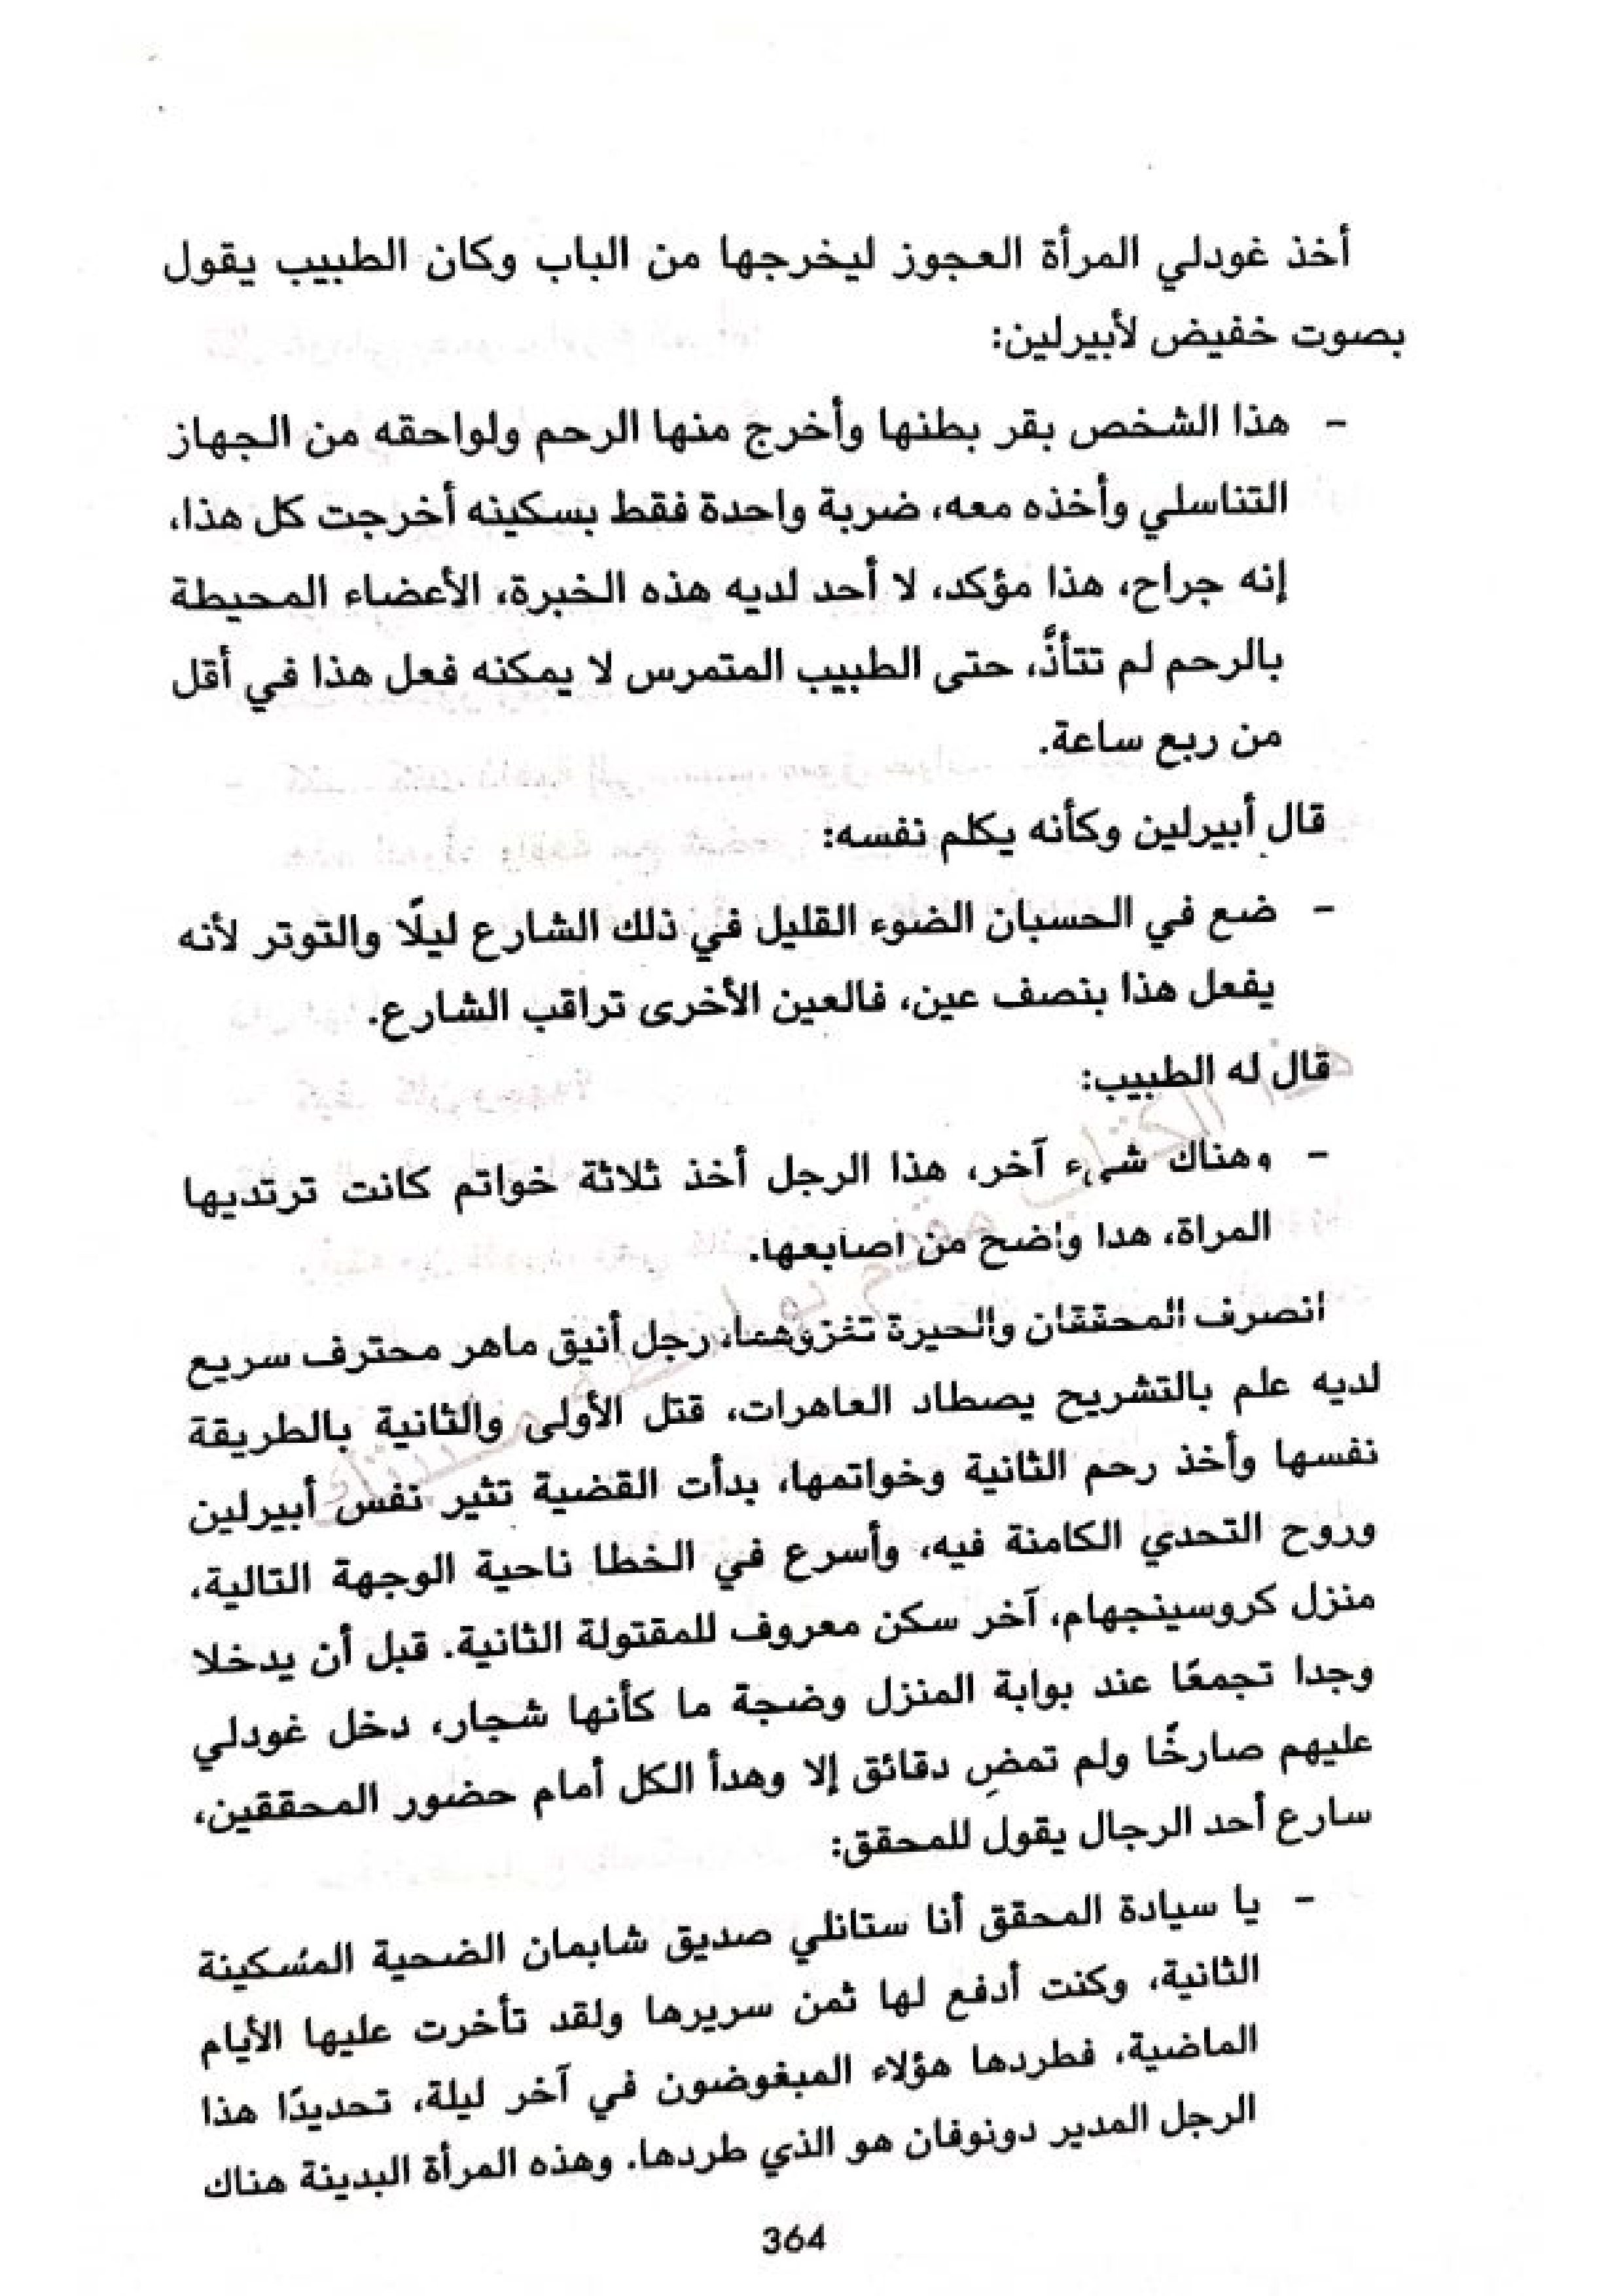 أخذ غودلي المرأة العجوز ليخرجها من الباب وكان الطبيب يقول
بصوت خفيض لأبيرلين:
- هذا الشخص بقر بطنها وأخرج منها الرحم ولواحقه من الجهاز
التناسلي وأخذه معه، ضربة واحدة فقط بسكينه أخرجت كل هذا،
إنه جراح، هذا مؤكد، لا أحد لديه هذه الخبرة، الأعضاء المحيطة
بالرحم لم تتأذَّ، حتى الطبيب المتمرس لا يمكنه فعل هذا في أقل
من ربع ساعة.
قال أبيرلين وكأنه يكلم نفسه:
- ضع في الحسبان الضوء القليل في ذلك الشارع ليلًا والتوتر لأنه
يفعل هذا بنصف عين، فالعين الأخرى تراقب الشارع.
قال له الطبيب:
- وهناك شيء آخر، هذا الرجل أخذ ثلاثة خواتم كانت ترتديها
المرأة، هذا واضح من أصابعها.
انصرف المحققان والحيرة تغزوهما، رجل أنيق ماهر محترف سريع
لديه علم بالتشريح يصطاد العاهرات، قتل الأولى والثانية بالطريقة
نفسها وأخذ رحم الثانية وخواتمها، بدأت القضية تثير نفس أبيرلين
وروح التحدي الكامنة فيه، وأسرع في الخطا ناحية الوجهة التالية،
منزل كروسينجهام، آخر سكن معروف للمقتولة الثانية. قبل أن يدخلا
وجدا تجمعًا عند بوابة المنزل وضجة ما كأنها شجار، دخل غودلي
عليهم صارخًا ولم تمضِ دقائق إلا وهدأ الكل أمام حضور المحققين،
سارع أحد الرجال يقول للمحقق:
- يا سيادة المحقق أنا ستانلي صديق شابمان الضحية المسكينة
الثانية، وكنت أدفع لها ثمن سريرها ولقد تأخرت عليها الأيام
الماضية، فطردها هؤلاء المبغوضون في آخر ليلة، تحديدًا هذا
الرجل المدير دونوفان هو الذي طردها. وهذه المرأة البدينة هناك
364